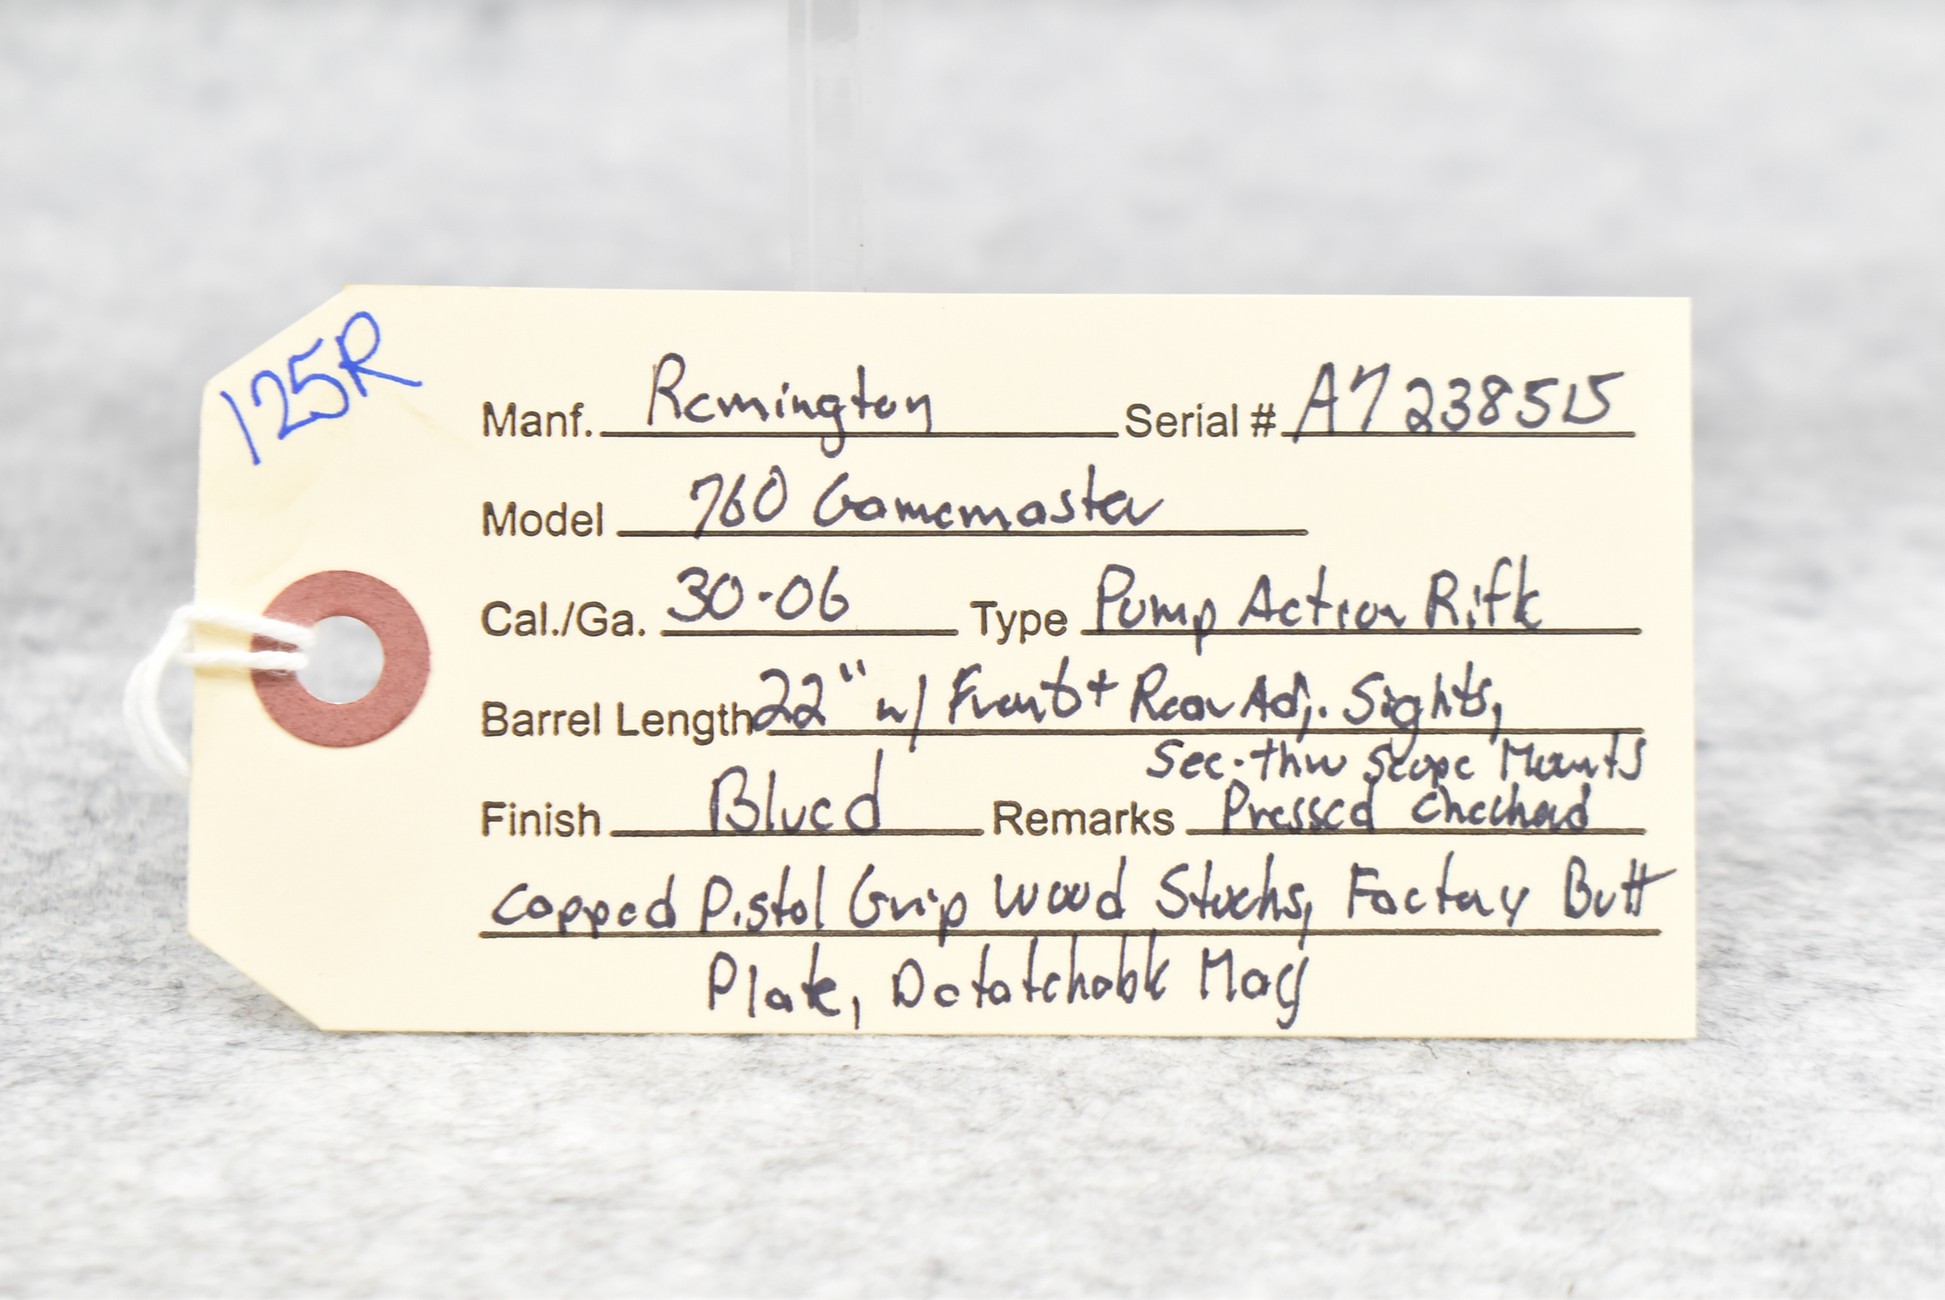 125R
Manf. Remington Serial # A7238515
Model 760 Gamemaster
Cal./Ga. 30-06 Type Pump Action Rifle
Barrel Length 22" w/ Front + Rear Adj. Sights,
See-thru Scope Mounts
Finish Blued Remarks Pressed Checkered
Capped Pistol Grip Wood Stocks, Factory Butt
Plate, Detatchable Mag